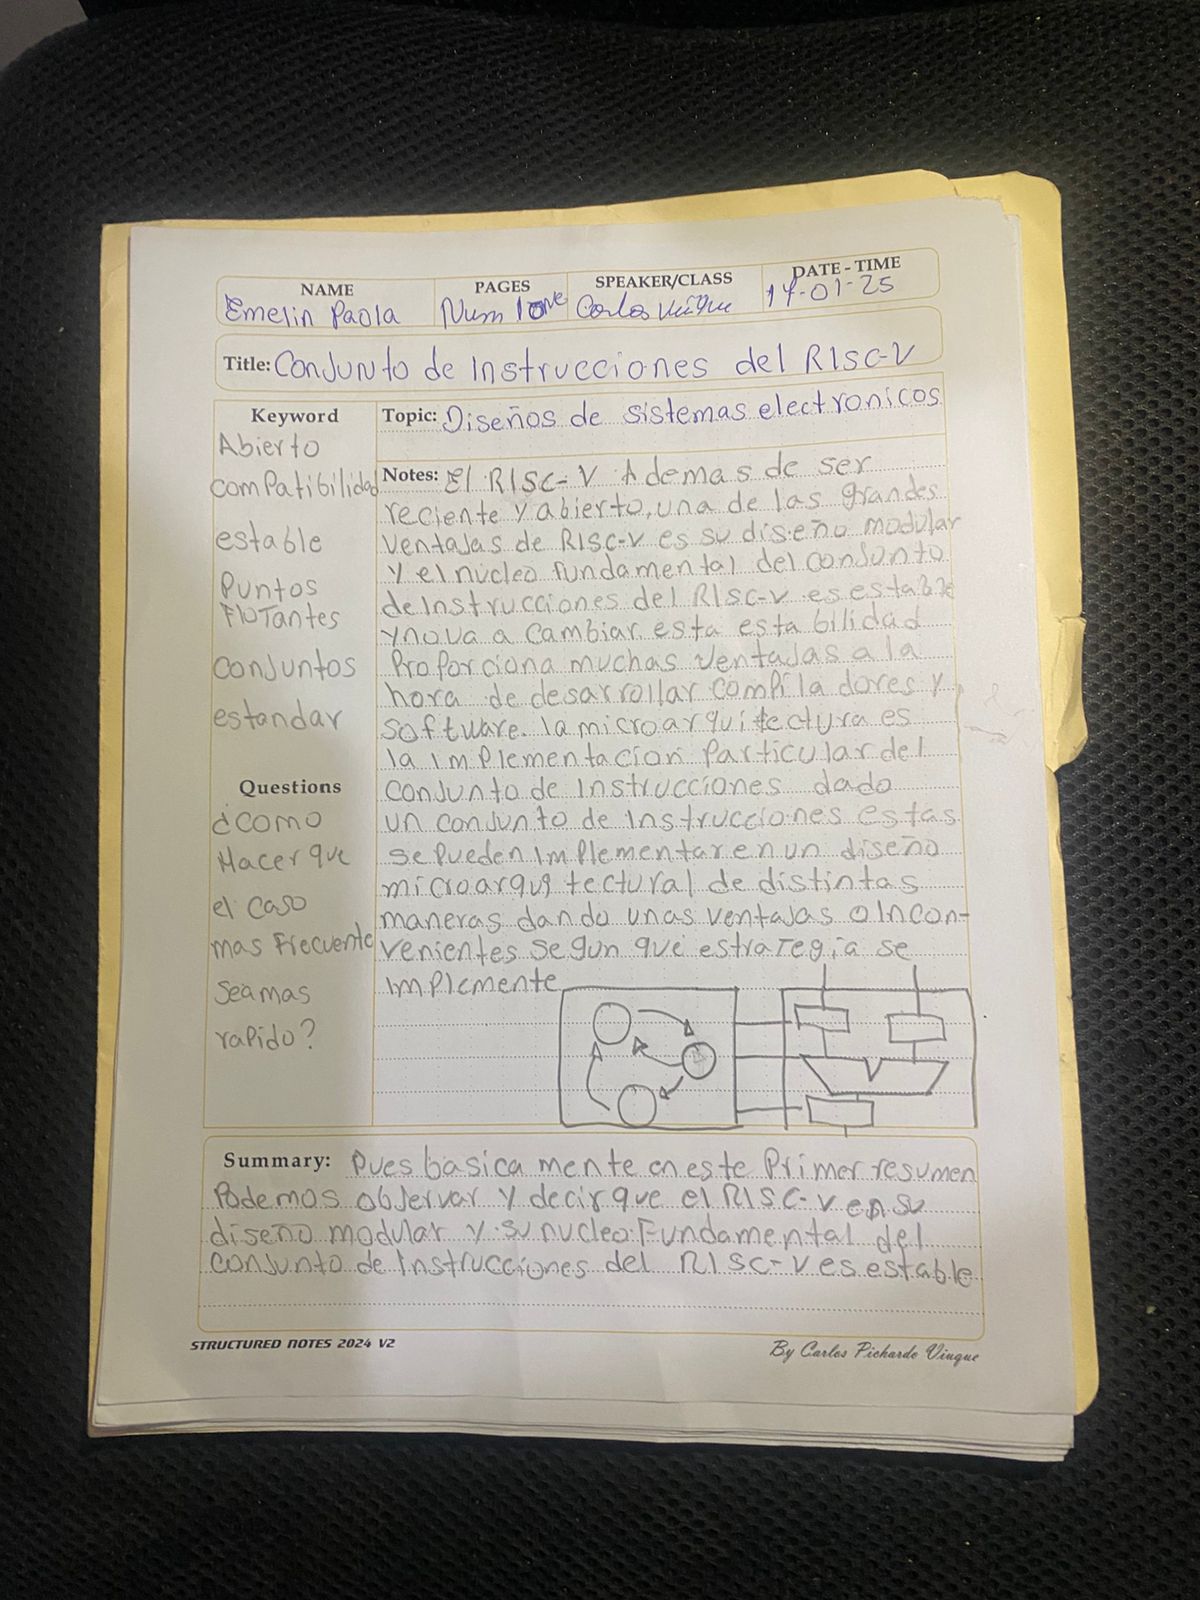 NAME
PAGES
SPEAKER/CLASS
DATE - TIME
Emelin Paola
Num 1
Carlos
-01-25
Title: Conjunto de Instrucciones del RISC-V
Keyword
Abierto
compatibilidad
estable
Puntos
Flotantes
conjuntos
estandar
Questions
¿como
Hacer que
el caso
mas Frecuente
sea mas
rapido?
Topic: Diseños de sistemas electronicos
Notes: El RISC-V Ademas de ser
reciente y abierto, una de las grandes
ventajas de RISC-V es su diseño modular
y el nucleo fundamental del conjunto
de Instrucciones del RISC-V es estable
y no va a cambiar. esta estabilidad
Proporciona muchas ventajas a la
hora de desarrollar compiladores y
software. la microarquitectura es
la implementacion particular del
conjunto de instrucciones dado
un conjunto de instrucciones estas
se pueden implementar en un diseño
microarquitectural de distintas
maneras dando unas ventajas o incon-
venientes segun que estrategia se
implemente
Summary: Pues basica mente en este Primer resumen
Podemos observar y decir que el RISC-V en su
diseño modular y su nucleo Fundamental del
conjunto de Instrucciones del RISC-V es estable
STRUCTURED NOTES 2024 V2
By Carlos Pichardo Viuque